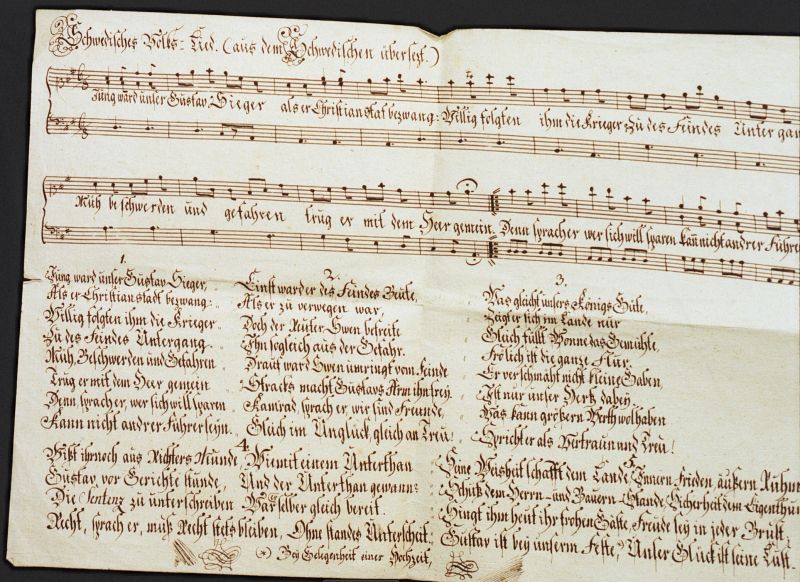 Schwedisches Volks-Lied. (aus dem Schwedischen übersetzt.)
Jung ward unser Gustav Sieger als er Christianstat bezwang: Willig folgten ihm die Krieger zu des Feindes Untergan
Müh beschwerden und gefahren trug er mit dem Heer gemein. Denn sprach er wer sich will sparen kann nicht andrer Führe
1.
Jung ward unser Gustav Sieger,
Als er Christianstadt bezwang:
Willig folgten ihm die Krieger
Zu des Feindes Untergang.
Müh, Beschwerden und Gefahren
Trug er mit dem Heer gemein
Denn sprach er, wer sich will sparen
Kann nicht andrer Führer seyn.
2.
Einst ward er des Feindes Beute,
Als er zu verwegen war,
Doch der Reuter Swen befreite
Ihn sogleich aus der Gefahr.
Drauf ward Swen umringt vom Feinde
Stracks macht Gustavs Arm ihn frey.
Kamrad, sprach er, wir sind Freunde,
Gleich im Unglück, gleich an Treu!
3.
Was gleicht unsers Königs Güte,
Zeigt er sich im Lande nur
Gleich füllt Wonne das Gemüthe,
Frölich ist die ganze Flur.
Er verschmäht nicht kleine Gaben,
Ist nur unser Herz dabey.
Was kann größern Werth wol haben
Spricht er als Vertraun und Treu!
4.
Wißt ihr noch aus Richters Munde,
Gustav, vor Gerichte stände,
Die Sentenz zu unterschreiben
Recht, sprach er, muß Recht stets bleiben,
Wie mit einem Unterthan
Und der Unterthan gewann:
War selber gleich bereit.
Ohne Standes Unterscheit.
Seine Weisheit schafft dem Lande Innern Frieden äußern Ruhm
Schütz dem Herrn- und Bauern-Stande, Sicherheit dem Eigenthu
Singt ihm heut ihr frohen Gäste, Freude sey in jeder Brust
Gustav ist bey unserm Feste, Unser Glück ist seine Lust.
(*) Bey Gelegenheit einer Hochzeit,